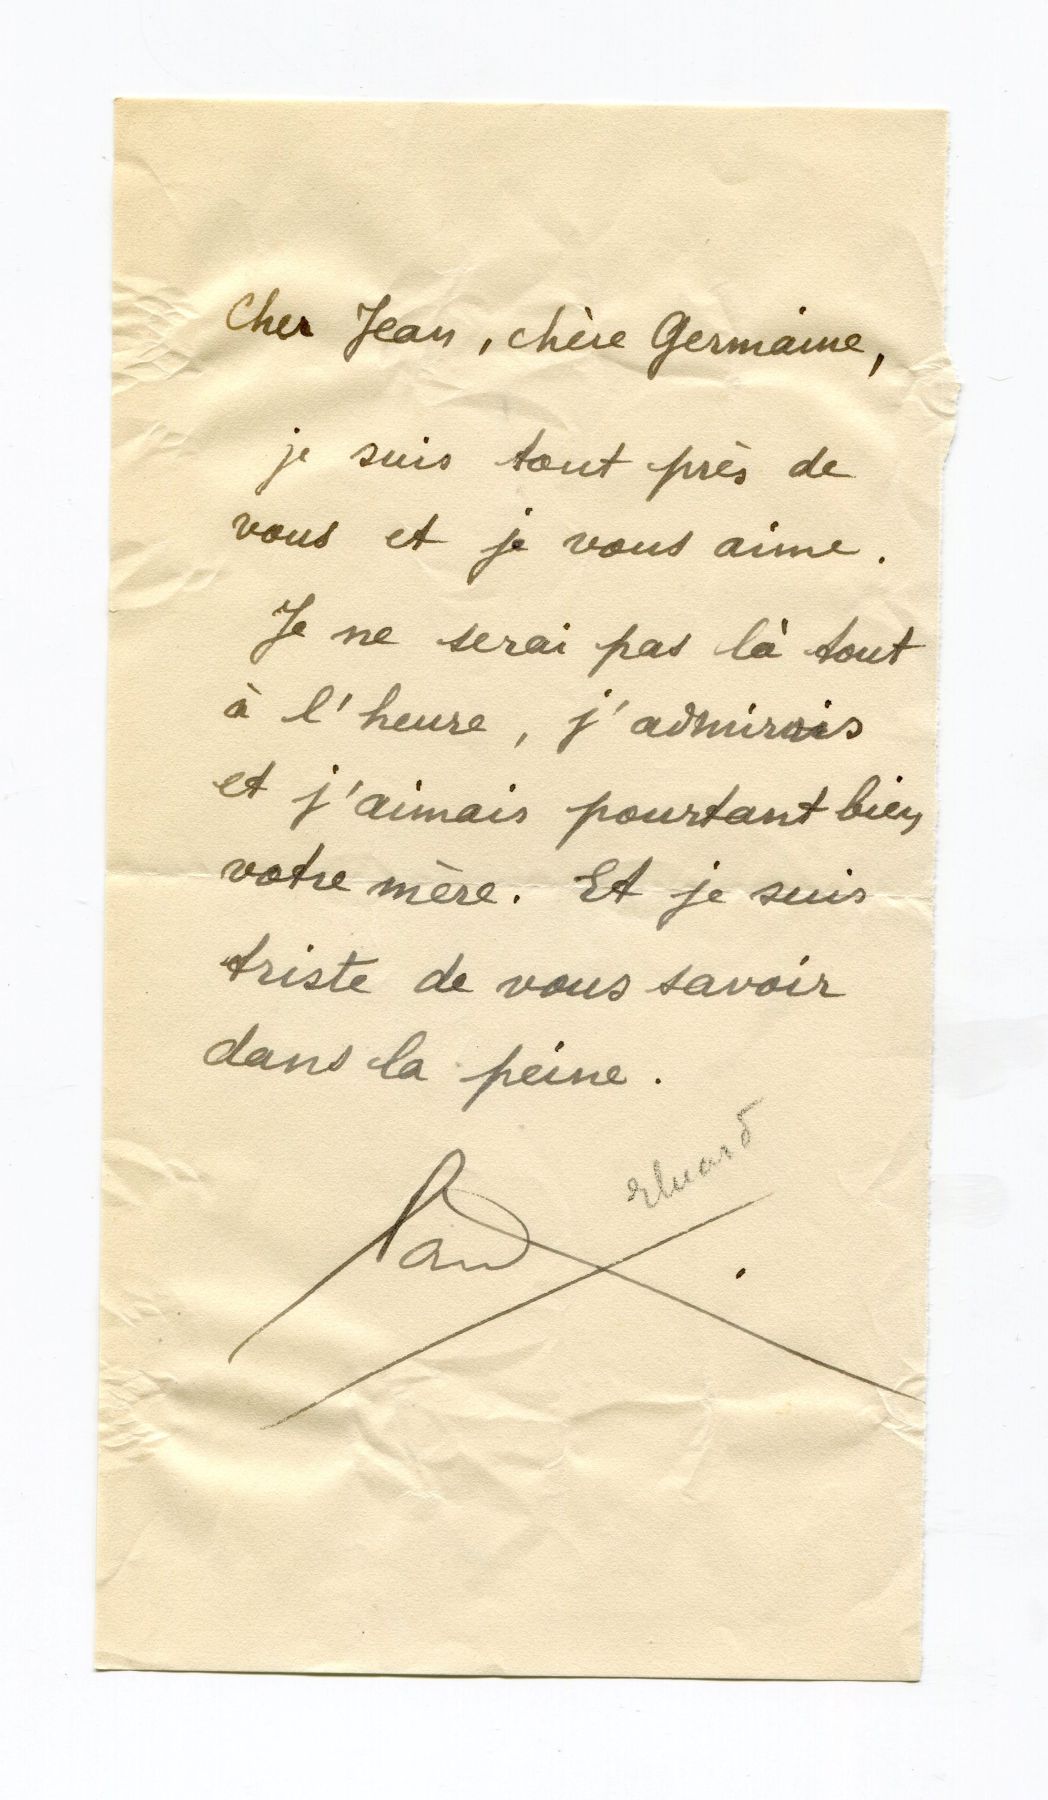 Cher Jean, chère Germaine,
je suis tout près de
vous et je vous aime.
Je ne serai pas là tout
à l'heure, j'admirais
et j'aimais pourtant bien
votre mère. Et je suis
triste de vous savoir
dans la peine.
Paul
eluard